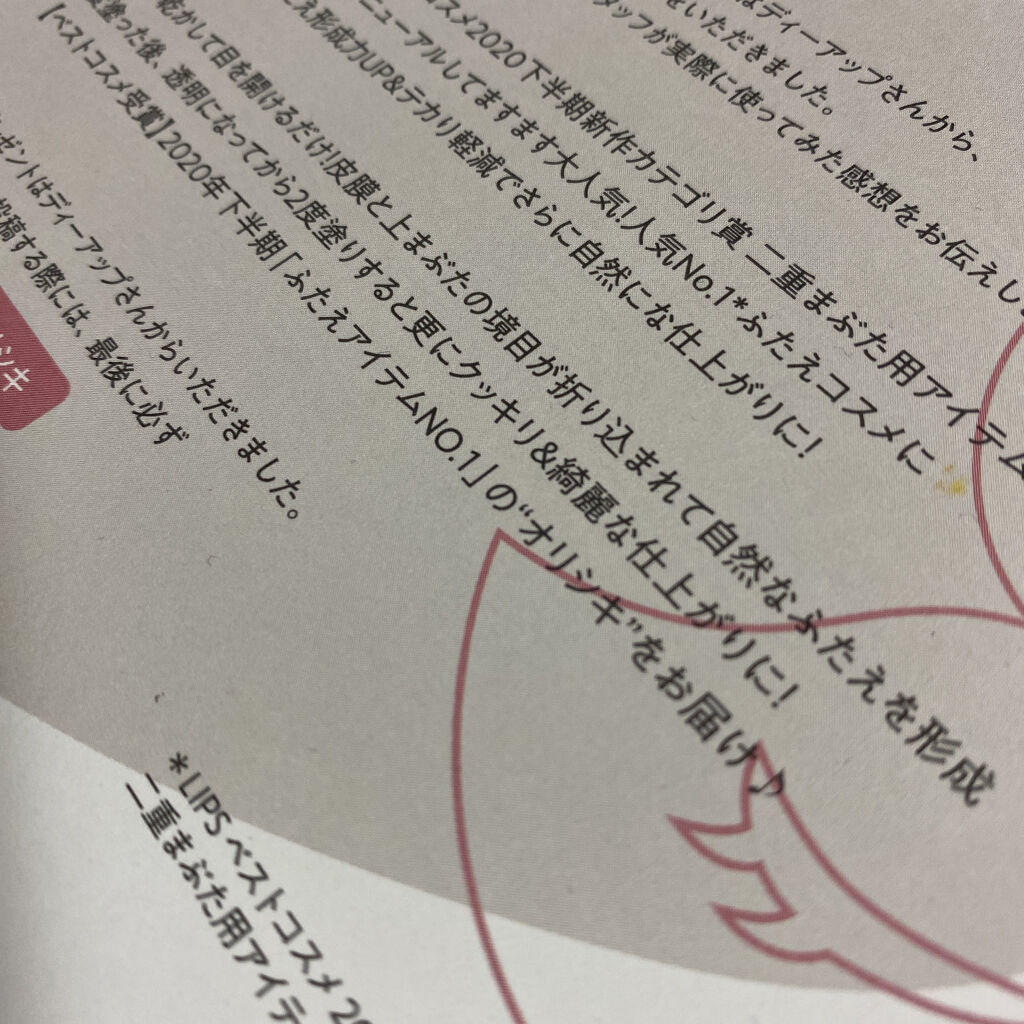 はディーアップさんから、
をいただきました。
タッフが実際に使ってみた感想をお伝えし
コスメ2020下半期新作カテゴリ賞 二重まぶた用アイテム
ニューアルしてますます大人気!人気No.1*ふたえコスメに
え形成力UP&テカリ軽減でさらに自然にな仕上がりに!
乾かして目を開けるだけ!皮膜と上まぶたの境目が折り込まれて自然なふたえを形成
塗った後、透明になってから2度塗りすると更にクッキリ&綺麗な仕上がりに!
【ベストコスメ受賞】2020年下半期「ふたえアイテムNO.1」の“オリシキ”をお届け♪
ゼントはディーアップさんからいただきました。
投稿する際には、最後に必ず
シキ
*LIPS ベストコスメ 20
二重まぶた用アイテ